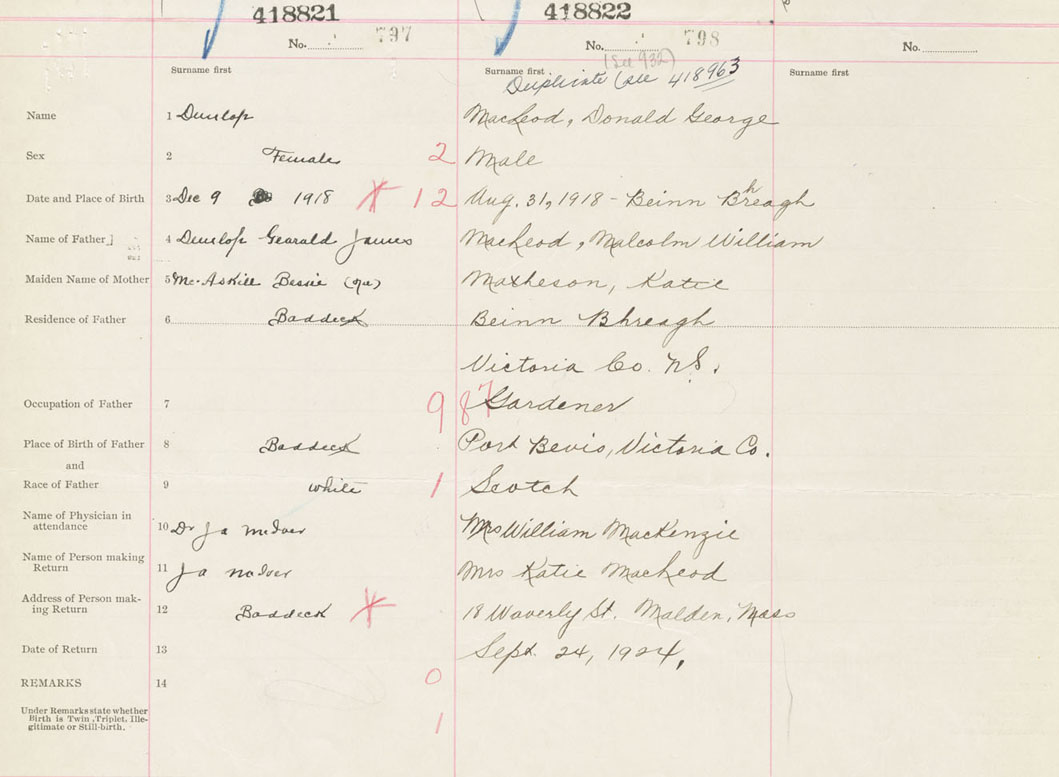 418821 418822
797 798
No. No. No.
(See 932)
Surname first Surname first Surname first
Duplicate (see 418963
Name 1 Dunlop MacLeod, Donald George
Sex 2 Female 2 Male
Date and Place of Birth 3 Dec 9 1918 12 Aug. 31, 1918 - Beinn Bhreagh
Name of Father 4 Dunlop Gearald James MacLeod, Malcolm William
Maiden Name of Mother 5 Mc-Askill Bessie Matheson, Katie
Residence of Father 6 Baddeck Beinn Bhreagh
Victoria Co. N.S.
Occupation of Father 7 987 Gardener
Place of Birth of Father 8 Baddeck Port Bevis, Victoria Co.
and
Race of Father 9 white 1 Scotch
Name of Physician in
attendance 10 Dr J a McIver Mrs William MacKenzie
Name of Person making
Return 11 J a McIver Mrs Katie MacLeod
Address of Person mak-
ing Return 12 Baddeck 18 Waverly St. Malden, Mass
Date of Return 13 Sept. 24, 1924.
REMARKS 14 0
Under Remarks state whether
Birth is Twin, Triplet, Ille-
gitimate or Still-birth. 1